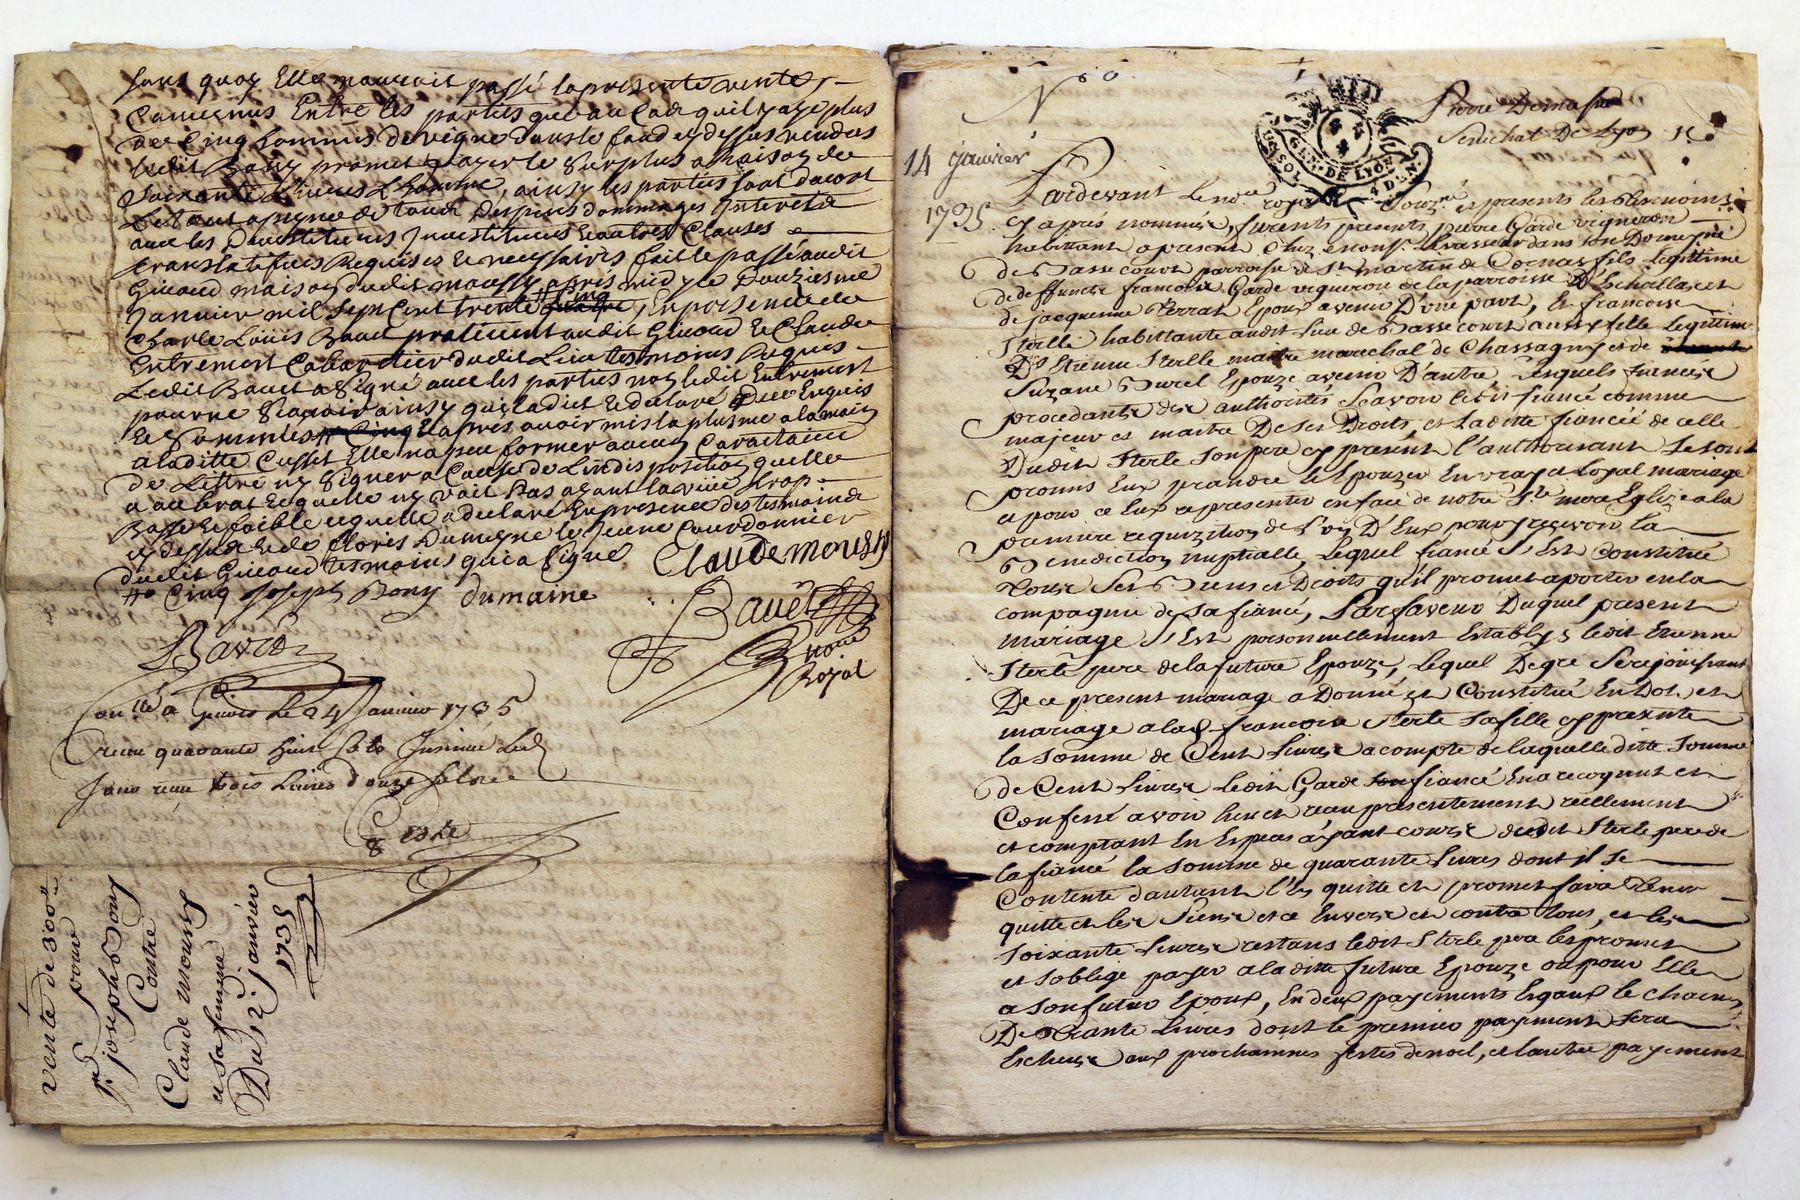 sans quoy Elle nauroit passé la presente vente,
Convenus Entre les parties que au Cas quil y aye plus
de Cinq hommes de vigne dans le fond cy dessus vendus
ledit Bony promet payer le Surplus a Raison de
Soixante Livres L'homme, ainsy les parties sont dacord
Le tout a peyne de tous Despens dommages Interets
avec les devestitures Investitures & autres Clauses
translatives Requises & necessaires fait & passé audit
Givord maison dudit moussy apres midy le Douziesme
Janvier mil sept Cent trente Cinq, En presence de
Charle Louis Bavet praticient audit Givord & Claude
Entremont Cabaretier dudit Lieu tesmoins Requis
Ledit Bavet a Signé avec les parties non ledit Entremont
pour ne Sçavoir ainsy quil a dict & declaré de ce Enquis
& Sommés & apres avoir mis la plusme a la main
a laditte Cusset Elle na peu former aucun Caractaire
de Lettre ny Signer a Cause de Lindisposition quelle
a au bras & quelle ny voit pas ayant la vüe trop
Basse & foible ce quelle a declaré En presence des tesmoins
cy dessus & de Cloris Dumeyne le Jeune Courdonnier
dudit Givord tesmoins qui a Signé Claude moussy
Cinq Joseph Bony dumaine
Bavet
nore
Royal
Conllé a Givors le 24 Janvier 1735
receu quarante huit sols Insinué led
Jour receu trois Livres douze sols
vente de 300 ll
pour
Sr joseph Bony
Contre
Claude moussy
et sa femme
Du 12 janvier
1735
GEN. DE LYON
4 DEN.
14 janvier
1735
Pardevant le nore royal et presents les tesmoins
cy apres nommés, furents presents pierre Garde vigneron
habittant a present Chez monsr. levasseur dans son Domayne
de Bassecourt parroisse de St martin de Cornas fils Legitime
de deffuncts francois Garde vigneron de la parroisse D'Echallas et
de jacqueme Perrat Epoux avenir D'une part, & francoise
Sterlle habittante audit lieu de Bassecourt aussy fille Legitime
D'Etienne Sterlle maitre marechal de Chassagny et de
Suzane Burel Epouze avenir D'autre Lesquels fiancés
procedants des authorités scavoir ledit fiancé comme
majeur et maitre De ses Droits et Ladite fiancée de celle
Dudit Sterle son pere cy present l'authorisant se sont
promis Eux prandre & Epouzer En vray et loyal mariage
et pour ce Eux representer en face de notre Ste mere Eglize a la
premiere requizition de l'un D'Eux pour y reçevoir la
Benediction nuptialle, Lequel fiancé s'Est Constitué
tous ses Biens et Droits qu'il promet aporter en la
compagnie de sa fiancé, En faveur Duquel present
mariage s'Est personnellement Establys ledit Etienne
Sterle pere de la future Epouze, Lequel De gré se rejouissant
De ce present mariage a Donné et Constitué En Dot et
mariage a lad. francoise Sterle sa fille cy presente
la somme de Cent Livres a compte de laquelle ditte somme
de Cent Livres ledit Garde fiancé En a recognut et
Confessé avoir heu et receu presentement reellement
et comptant En Especes ayant cours dudit Sterle pere de
la fiancé la somme de quarante Livres dont il se
Contente d'autant l'En quitte et promet faire tenir
quitte et les Siens et ce Envers et contre tous, et les
soixante Livres restans ledit Sterle pere les promet
et s'oblige payer a la ditte future Epouze ou pour Elle
a son futur Epoux, En deux payements Egaux le chacun
De Trante Livres dont le premier payement sera
Escheus aux prochaines festes de noel, et l'autre payement